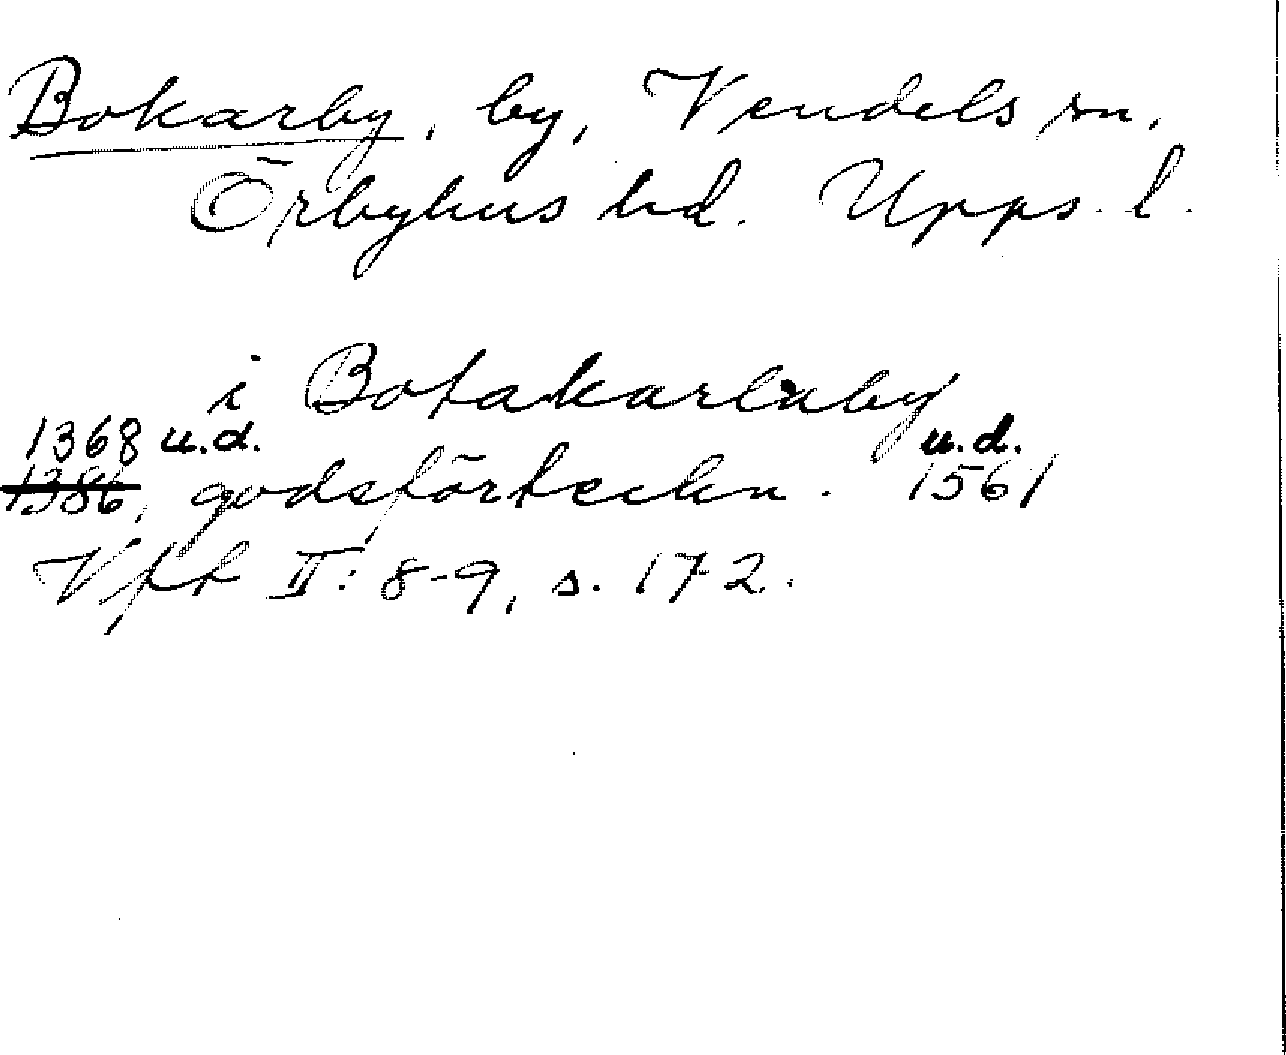 Bokarby, by, Vendels sn,
Örbyhus hd. Upps. l.
i Botakarlaby
1368 u.d. u.d.
1386, godsförteckn. 1561
Vfft II: 8-9, s. 172.